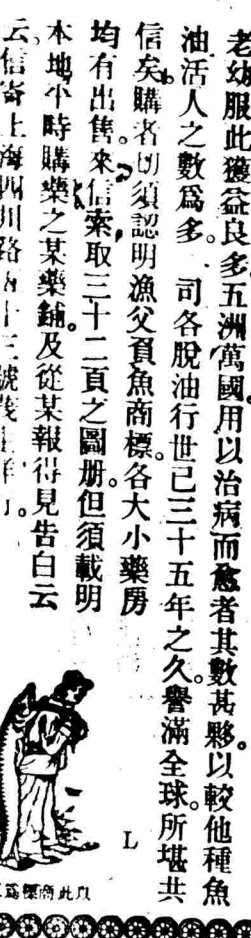 老幼服此獲益良多五洲萬國。用以治病而愈者其數甚夥。以較他種魚
油活人之數爲多。司各脫油行世已三十五年之久。譽滿全球。所堪共
信矣。購者切須認明漁父負魚商標。各大小藥房
均有出售。來信索取三十二頁之圖册。但須載明
本地小時購藥之某藥鋪。及從某報得見告白云
云。信寄上海四川路五十三號
L
以此商標爲